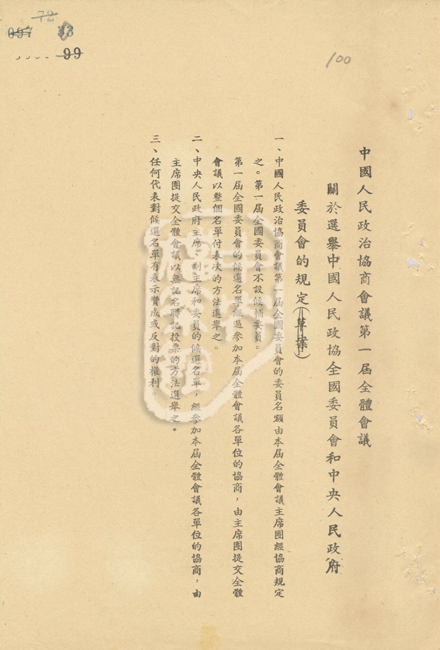 72
097 33
99
100
中國人民政治協商會議第一屆全體會議
關於選舉中國人民政協全國委員會和中央人民政府
委員會的規定(草案)
一、中國人民政治協商會議第一屆全國委員會的委員名額由本屆全體會議主席團經協商規定
之。第一屆全國委員會不設候補委員。
第一屆全國委員會的候選名單經過參加本屆全體會議各單位的協商,由主席團提交全體
會議以整個名單付表決的方法選舉之。
二、中央人民政府主席、副主席和委員的候選名單,經參加本屆全體會議各單位的協商,由
主席團提交全體會議以無記名聯記投票的方法選舉之。
三、任何代表對候選名單有表示贊成或反對的權利